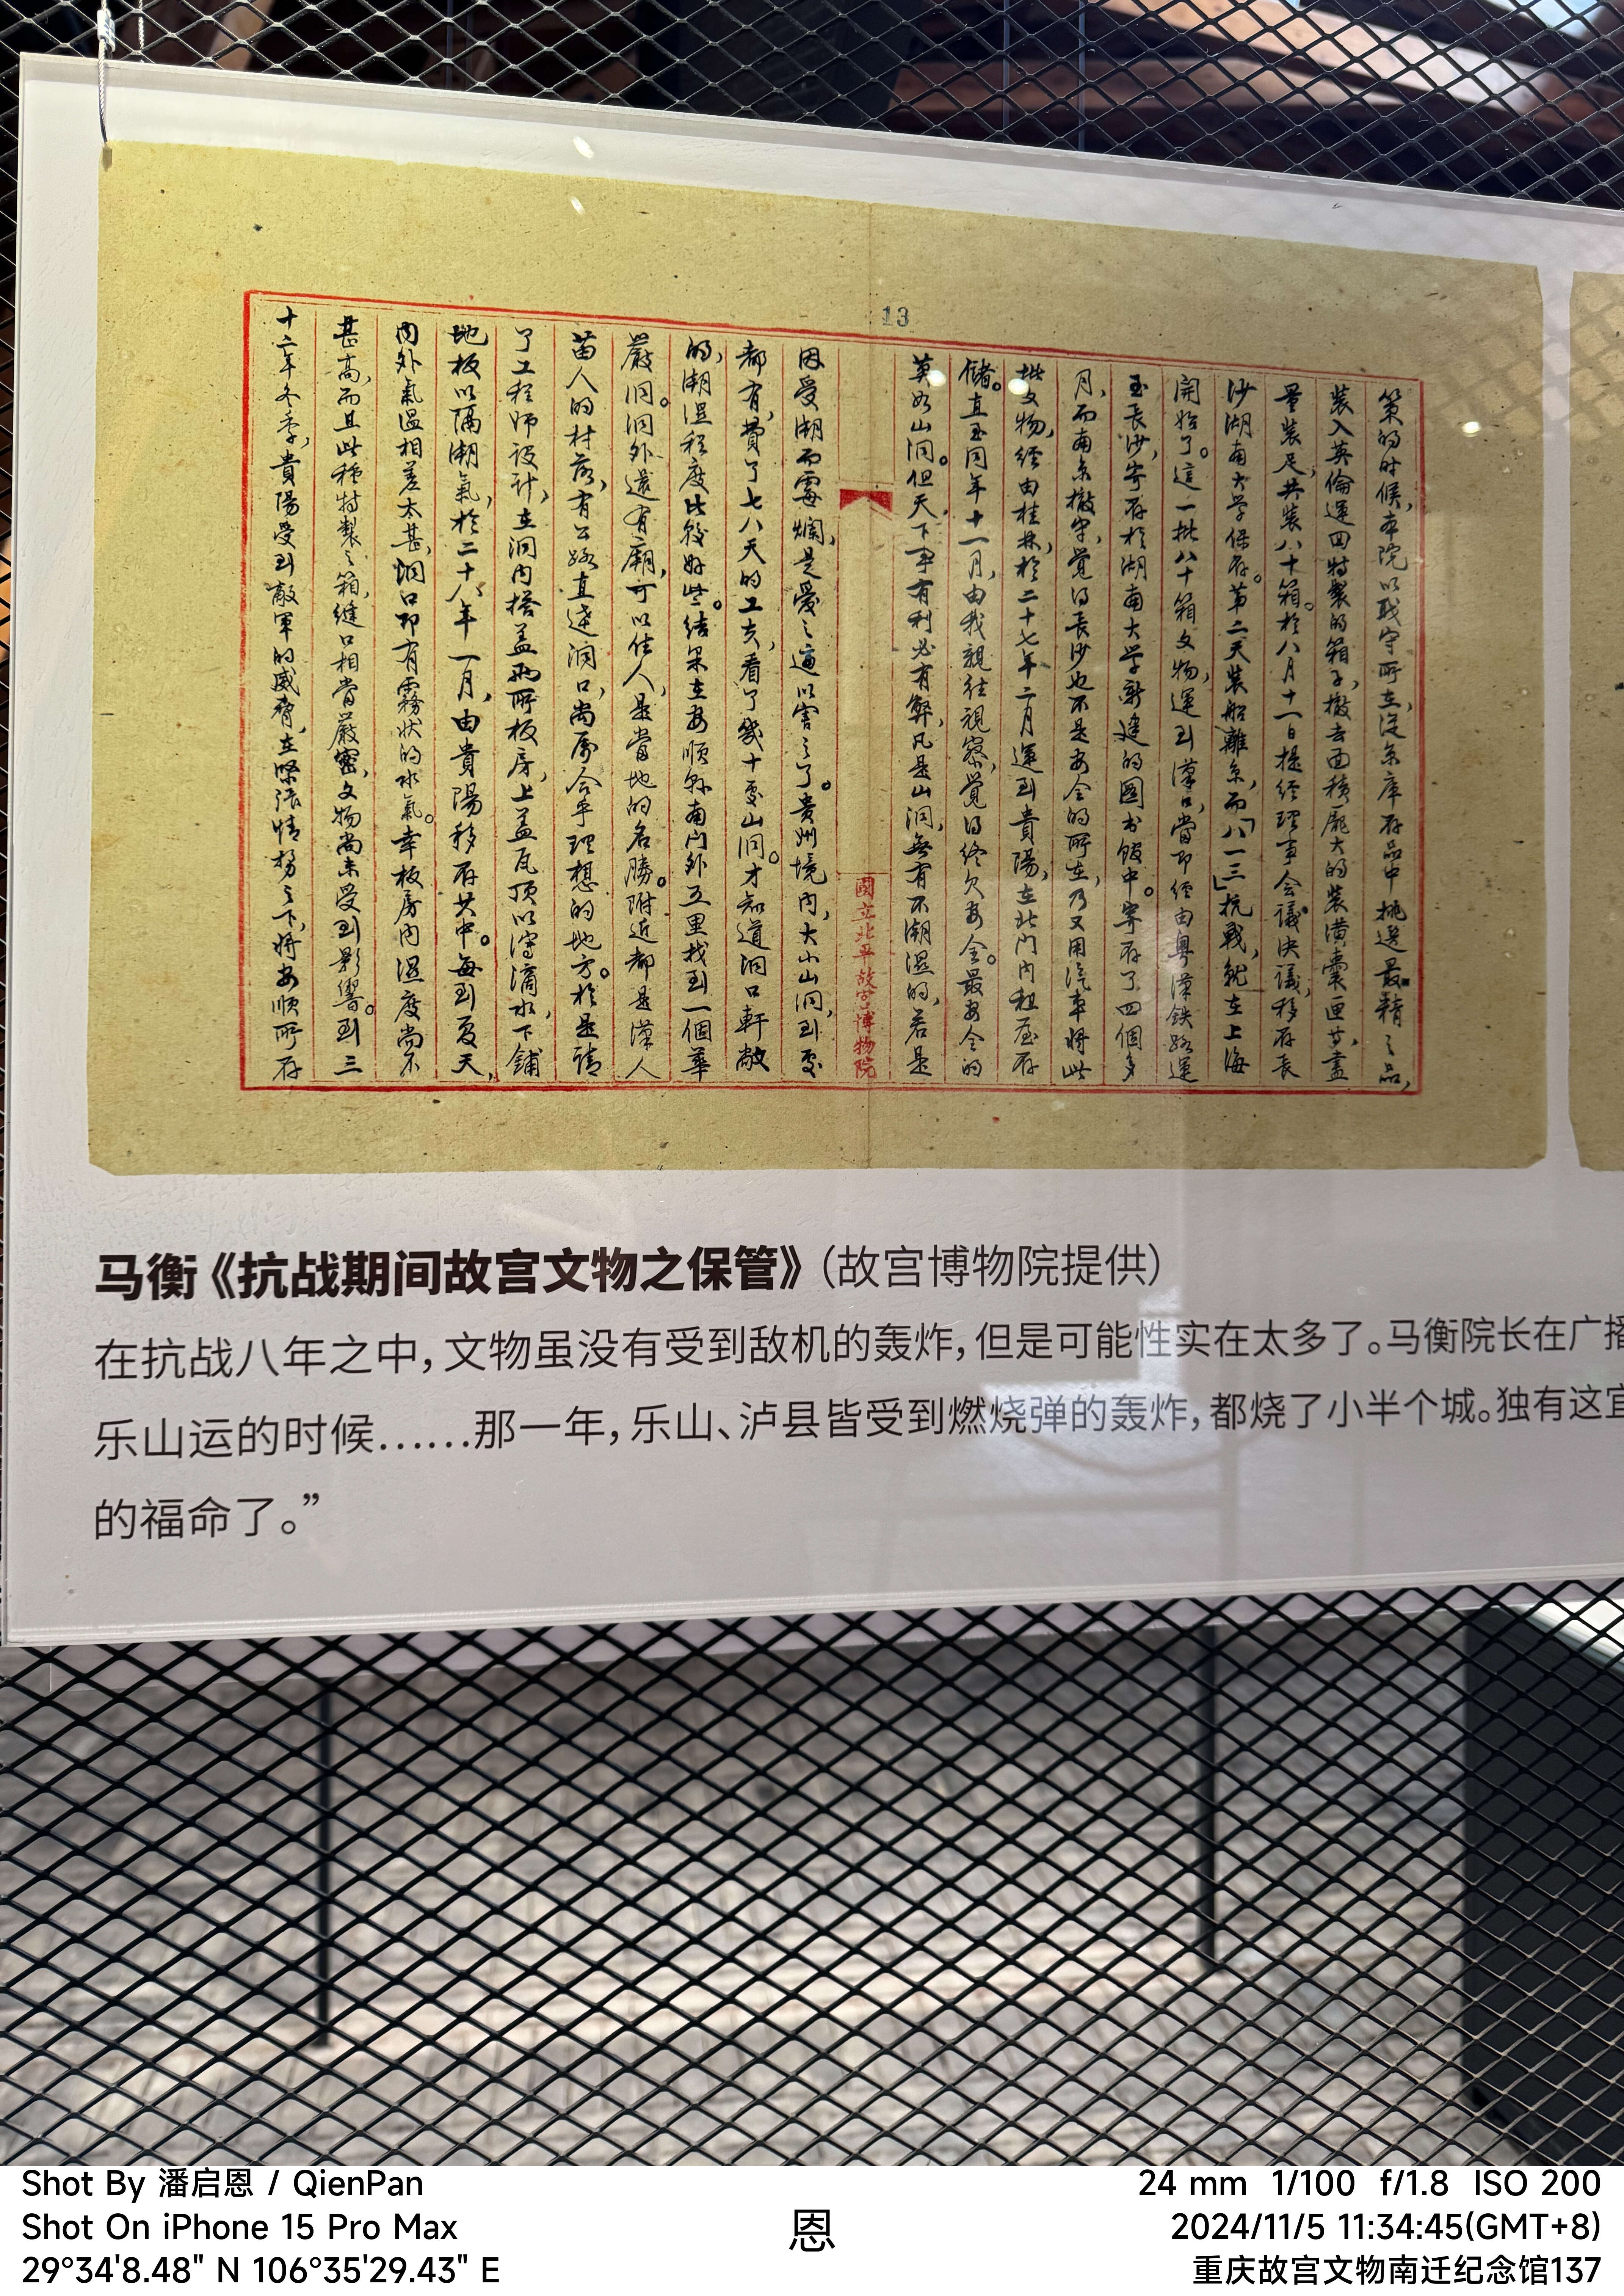 13
策的时候，本院以职守所在，從京庫存品中挑選最精之品，
装入英倫運回特製的箱子，撤去面積龐大的装潢囊匣等，盡
量装足，共装八十箱。於八月十一日提經理事会議決議，移存長
沙湖南大学保存。第二天装船離京，而「八一三」抗戰，就在上海
開始了。這一批八十箱文物，運到漢口，當即經由粤漢鉄路運
至長沙，寄存於湖南大学新建的圖书館中。寄存了四個多
月，而南京撤守，覺得長沙也不是安全的所在，乃又用汽車將此
批文物，經由桂林，於二十七年二月運到貴陽，在北门内租屋存
儲。直至同年十一月，由我親往視察，覺得终欠安全。最安全的
莫如山洞。但天下事有利必有弊，凡是山洞，無有不潮湿的，若是
國立北平故宫博物院
因受潮而霉爛，是愛之適以害之了。貴州境内，大小山洞，到處
都有，費了七八天的工夫，看了幾十處山洞。才知道洞口軒敞
的，潮湿程度比較好些。结果在安順縣南门外五里找到一個華
嚴洞。洞外還有廟，可以住人，是當地的名勝。附近都是漢人
苗人的村落，有公路直達洞口，尚屬合乎理想的地方。於是請
了工程师设计，在洞内搭盖兩所板房，上盖瓦顶以泻滴水，下鋪
地板以隔潮氣，於二十八年一月，由貴陽移存其中。每到夏天，
内外氣温相差太甚，洞口即有霧状的水氣。幸板房内湿度尚不
甚高，而且此種特製之箱，縫口相當嚴密，文物尚未受到影響。到三
十三年冬季，貴陽受到敵軍的威脅，在緊張情形之下，將安順所存
马衡《抗战期间故宫文物之保管》（故宫博物院提供）
在抗战八年之中，文物虽没有受到敌机的轰炸，但是可能性实在太多了。马衡院长在广播
乐山运的时候……那一年，乐山、泸县皆受到燃烧弹的轰炸，都烧了小半个城。独有这宜
的福命了。”
Shot By 潘启恩 / QienPan
Shot On iPhone 15 Pro Max
29°34'8.48" N 106°35'29.43" E
恩
24 mm 1/100 f/1.8 ISO 200
2024/11/5 11:34:45(GMT+8)
重庆故宫文物南迁纪念馆137